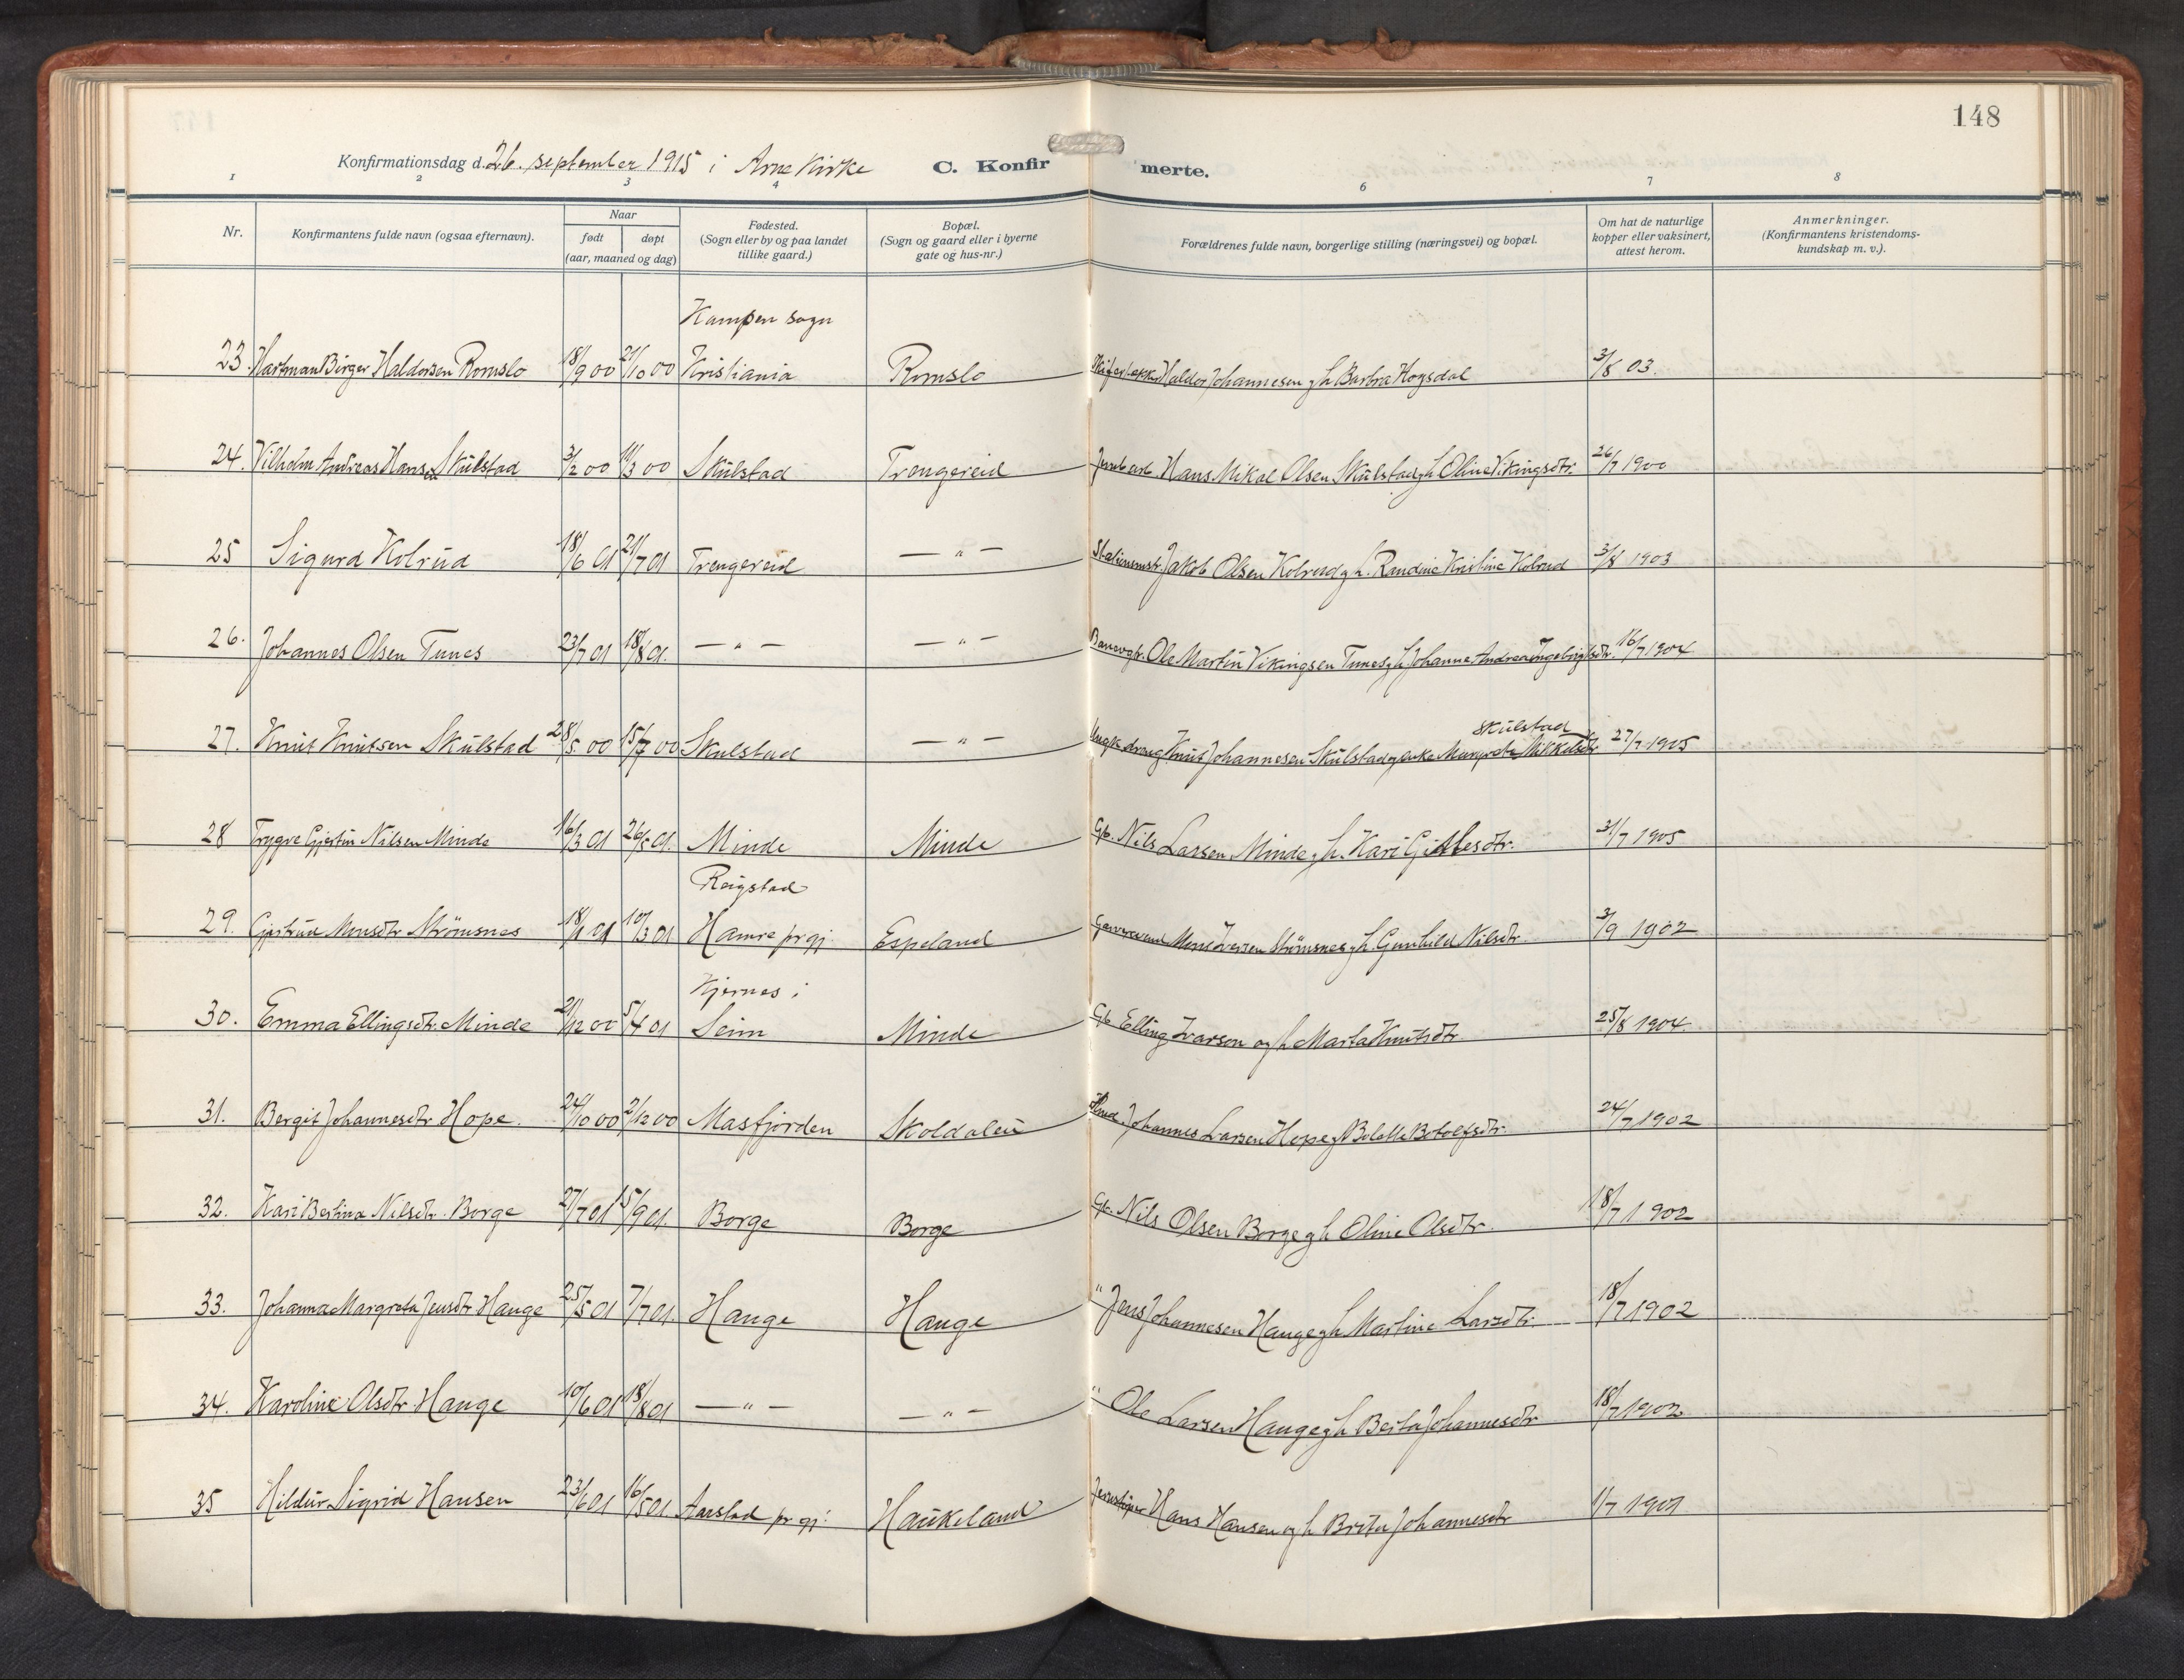 148
Konfirmationsdag d. 26. september 1915 i Arne Kirke C. Konfirmerte.
1 2 3 4 6 7 8
Nr. Konfirmantens fulde navn (ogsaa efternavn). Naar født døpt (aar, maaned og dag) Fødested. (Sogn eller by og paa landet tillike gaard.) Bopæl. (Sogn og gaard eller i byerne gate og hus-nr.) Forældrenes fulde navn, borgerlige stilling (næringsvei) og bopæl. Om hat de naturlige kopper eller vaksinert, attest herom. Anmerkninger. (Konfirmantens kristendoms-kundskap m. v.).
Kampen sogn
23. Hartman Birger Haldorsen Romslo 18/9 00 21/10 00 Kristiania Romslo Haldor Johannesen g h Barbra Hogsdal 3/8 03.
24. Vilhelm Andreas Hansen Skulstad 3/2 00 11/3 00 Skulstad Trengereid Jernb.arb. Hans Mikal Olsen Skulstad g h Oline Vikingsdtr. 26/7 1900
25 Sigurd Kolrud 18/6 01 21/7 01 Trengereid — " — Stationsmstr. Jakob Olsen Kolrud g h. Randine Kristine Kolrud 3/8 1903
26. Johannes Olsen Tunes 23/7 01 18/8 01. — " — — " — Banevogt. Ole Martin Vikingsen Tunes g h Johanne Andrea Ingebrigtsdtr. 16/7 1904
Skulstad
27. Knut Knutsen Skulstad 28/5 00 15/7 00 Skulstad — " — Knut Johannesen Skulstad g enke Margrete Mikkelsdtr 27/7 1905
28 Trygve Gjertin Nilsen Minde 16/3 01 26/5 01. Minde Minde Gb. Nils Larsen Minde g h. Kari Gitlesdtr. 31/7 1905
Reigstad
29. Gjertrud Monsdtr Strömsnes 18/1 01 10/3 01 Hamre pr gj. Espeland Mons Iversen Strömsnes g h. Gunhild Nilsdtr. 3/9 1902
Kjernes i
30. Emma Ellingsdtr. Minde 21/12 00 5/4 01 Seim Minde Gb Elling Ivarson og h Marta Knutsdtr 25/8 1904.
31. Bergit Johannesdtr Hope. 24/10 00 2/12 00 Masfjorden Skoldalen Johannes Larsen Hope g Bolette Botolfsdtr. 24/7 1902
32. Kari Bertina Nilsdtr. Borge 27/7 01 15/9 01. Borge Borge Gb. Nils Olsen Borge g h Oline Olsdtr. 18/7 1902
33. Johanna Margreta Jensdtr Hauge 25/5 01 7/7 01. Hauge Hauge " Jens Johannesen Hauge g h Martine Larsdtr. 18/7 1902
34. Karoline Olsdtr. Hauge 10/6 01 18/8 01 — " — — " — " Ole Larsen Hauge g h Berta Johannesdtr 18/7 1902
35 Hildur Sigrid Hansen 23/6 01 16/5 01. Aarstad pr gj. Haukeland Hans Hansen og h Brita Johannesdtr 1/7 1901